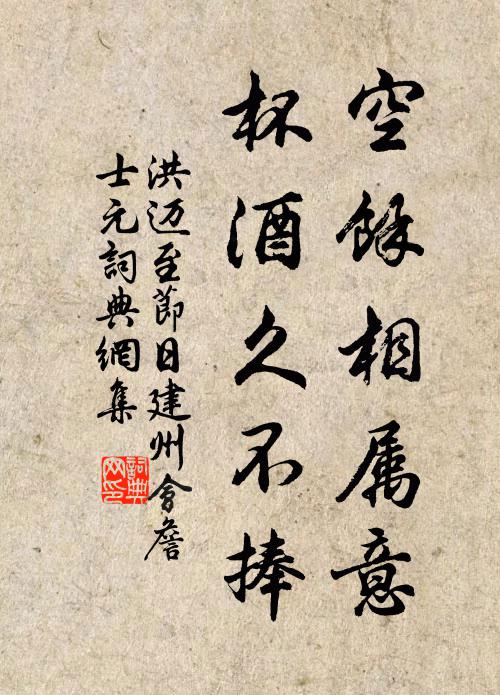 空餘相属意
杯酒久不捧
洪迈至節日建州會詹
士元詞典網集
詞典網印